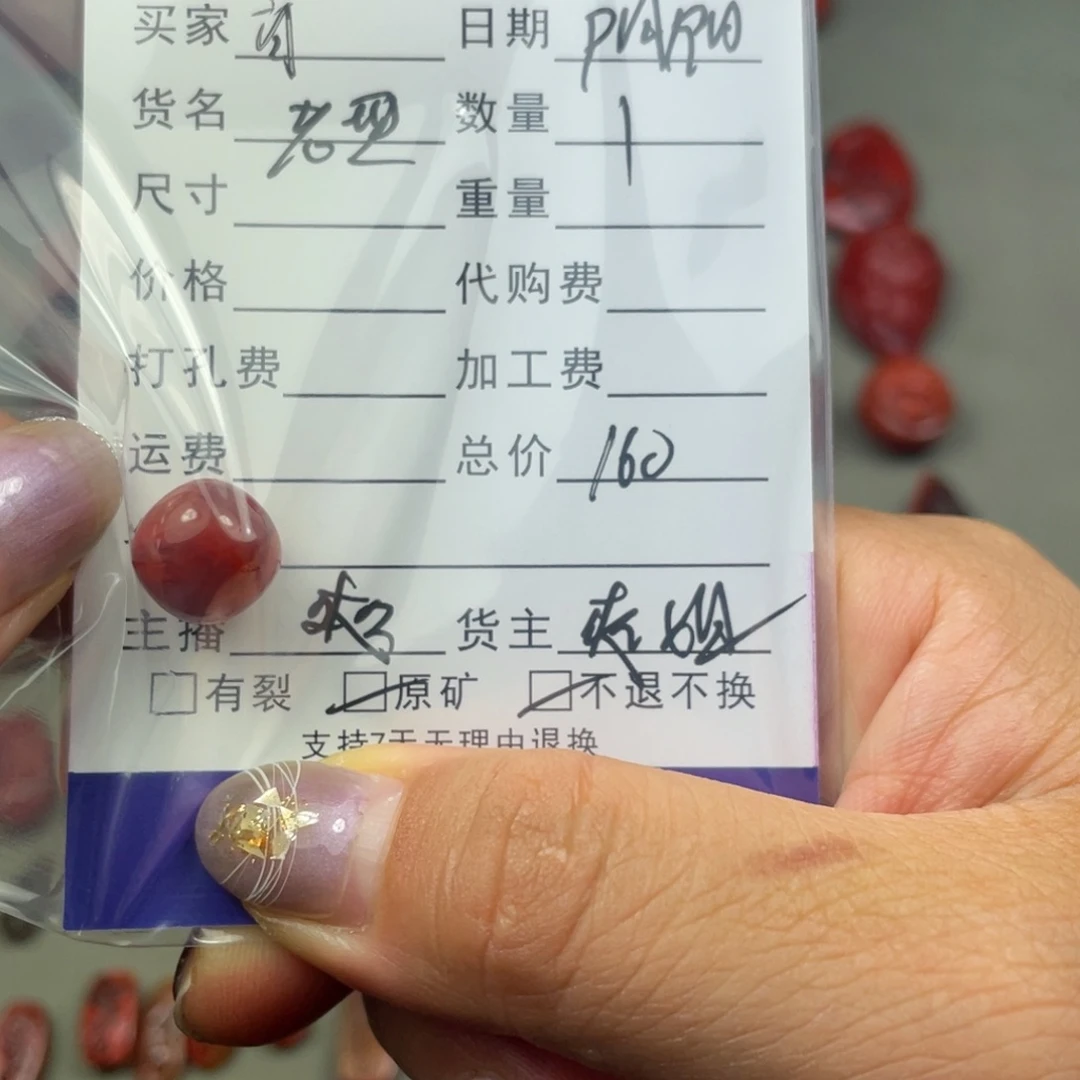 买家 日期
货名 老型 数量 1
尺寸 重量
价格 代购费
打孔费 加工费
运费 总价 160
主播 货主
有裂 原矿 不退不换
支持7天无理由退换